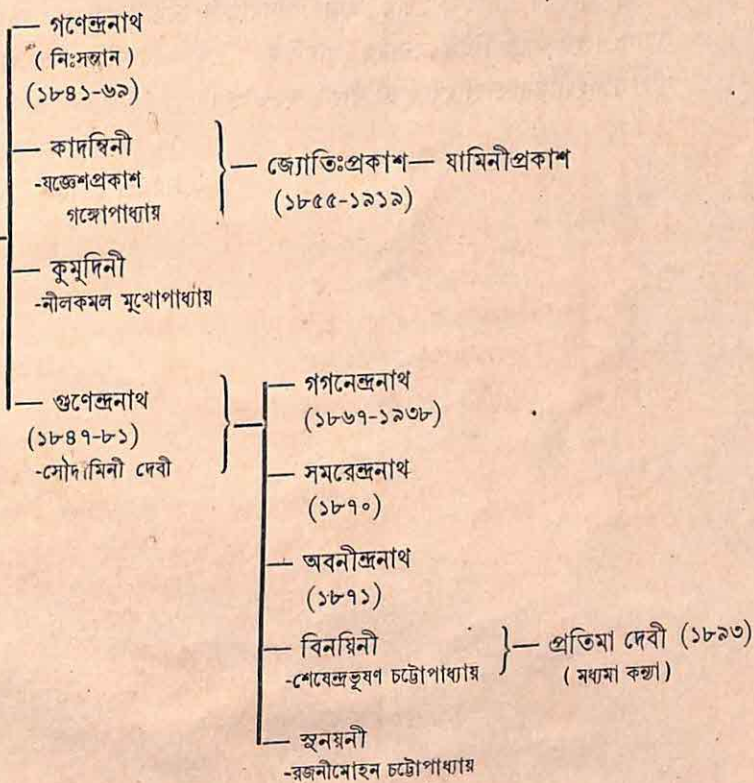 গণেন্দ্রনাথ
( নিঃসন্তান )
(১৮৪১-৬৯)
কাদম্বিনী
-যজ্ঞেশপ্রকাশ
গঙ্গোপাধ্যায়
জ্যোতিঃপ্রকাশ— যামিনীপ্রকাশ
(১৮৫৫-১৯১৯)
কুমুদিনী
-নীলকমল মুখোপাধ্যায়
গুণেন্দ্রনাথ
(১৮৪৭-৮১)
-সৌদামিনী দেবী
গগনেন্দ্রনাথ
(১৮৬৭-১৯৩৮)
সমরেন্দ্রনাথ
(১৮৭০)
অবনীন্দ্রনাথ
(১৮৭১)
বিনয়িনী
-শেষেন্দ্রভূষণ চট্টোপাধ্যায়
প্রতিমা দেবী (১৮৯৩)
( মধ্যমা কন্যা )
সুনয়নী
-রজনীমোহন চট্টোপাধ্যায়